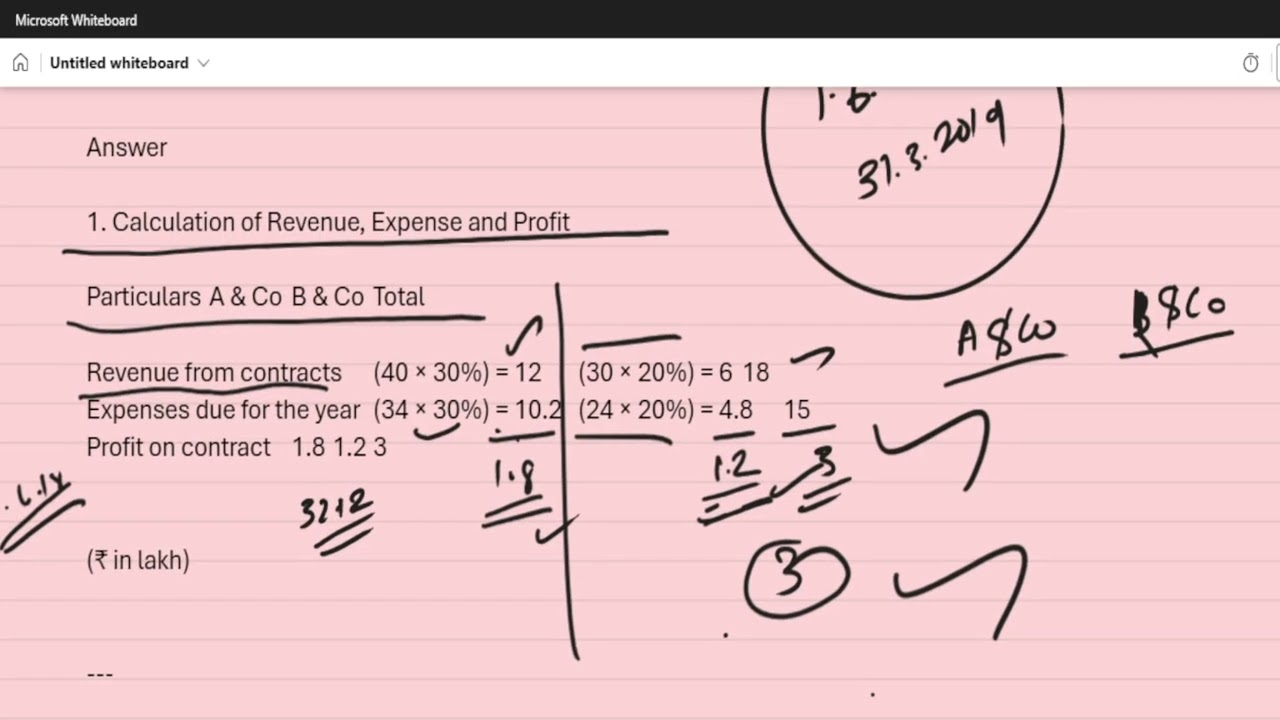 Microsoft Whiteboard
Untitled whiteboard
1. 6.
31.3.2019
Answer
1. Calculation of Revenue, Expense and Profit
Particulars A & Co B & Co Total
A & Co B & Co
Revenue from contracts (40 × 30%) = 12 (30 × 20%) = 6 18
Expenses due for the year (34 × 30%) = 10.2 (24 × 20%) = 4.8 15
Profit on contract 1.8 1.2 3
1.8 1.2 3
32+2
(₹ in lakh)
3
---